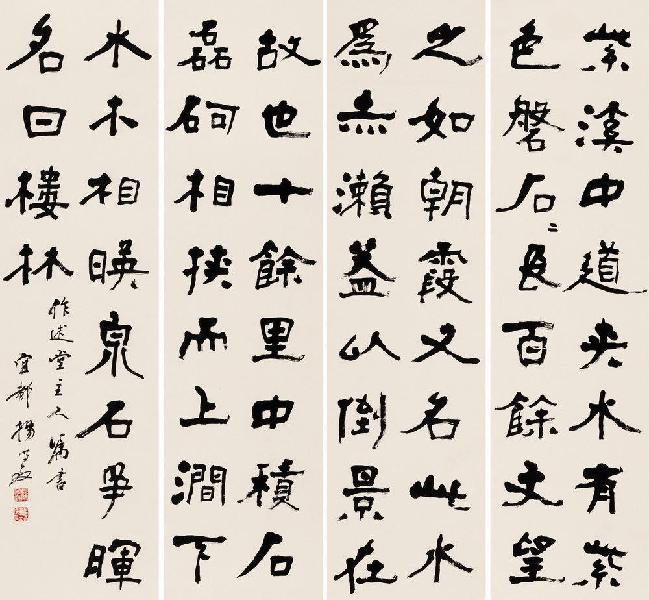 紫溪中道夾水有紫
色磐石〻長百餘丈望
之如朝霞又名此水
爲赤瀨蓋以倒景在
故也十餘里中積石
磊砢相挾而上澗下
水木相暎泉石爭暉
名曰樓林
述堂主人屬書
宜都楊守敬